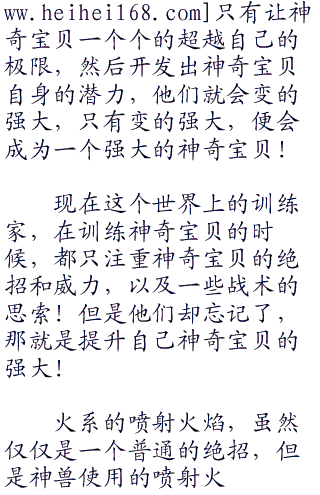 ww.heihei168.com]只有让神
奇宝贝一个个的超越自己的
极限，然后开发出神奇宝贝
自身的潜力，他们就会变的
强大，只有变的强大，便会
成为一个强大的神奇宝贝！
现在这个世界上的训练
家，在训练神奇宝贝的时
候，都只注重神奇宝贝的绝
招和威力，以及一些战术的
思索！但是他们却忘记了，
那就是提升自己神奇宝贝的
强大！
火系的喷射火焰，虽然
仅仅是一个普通的绝招，但
是神兽使用的喷射火